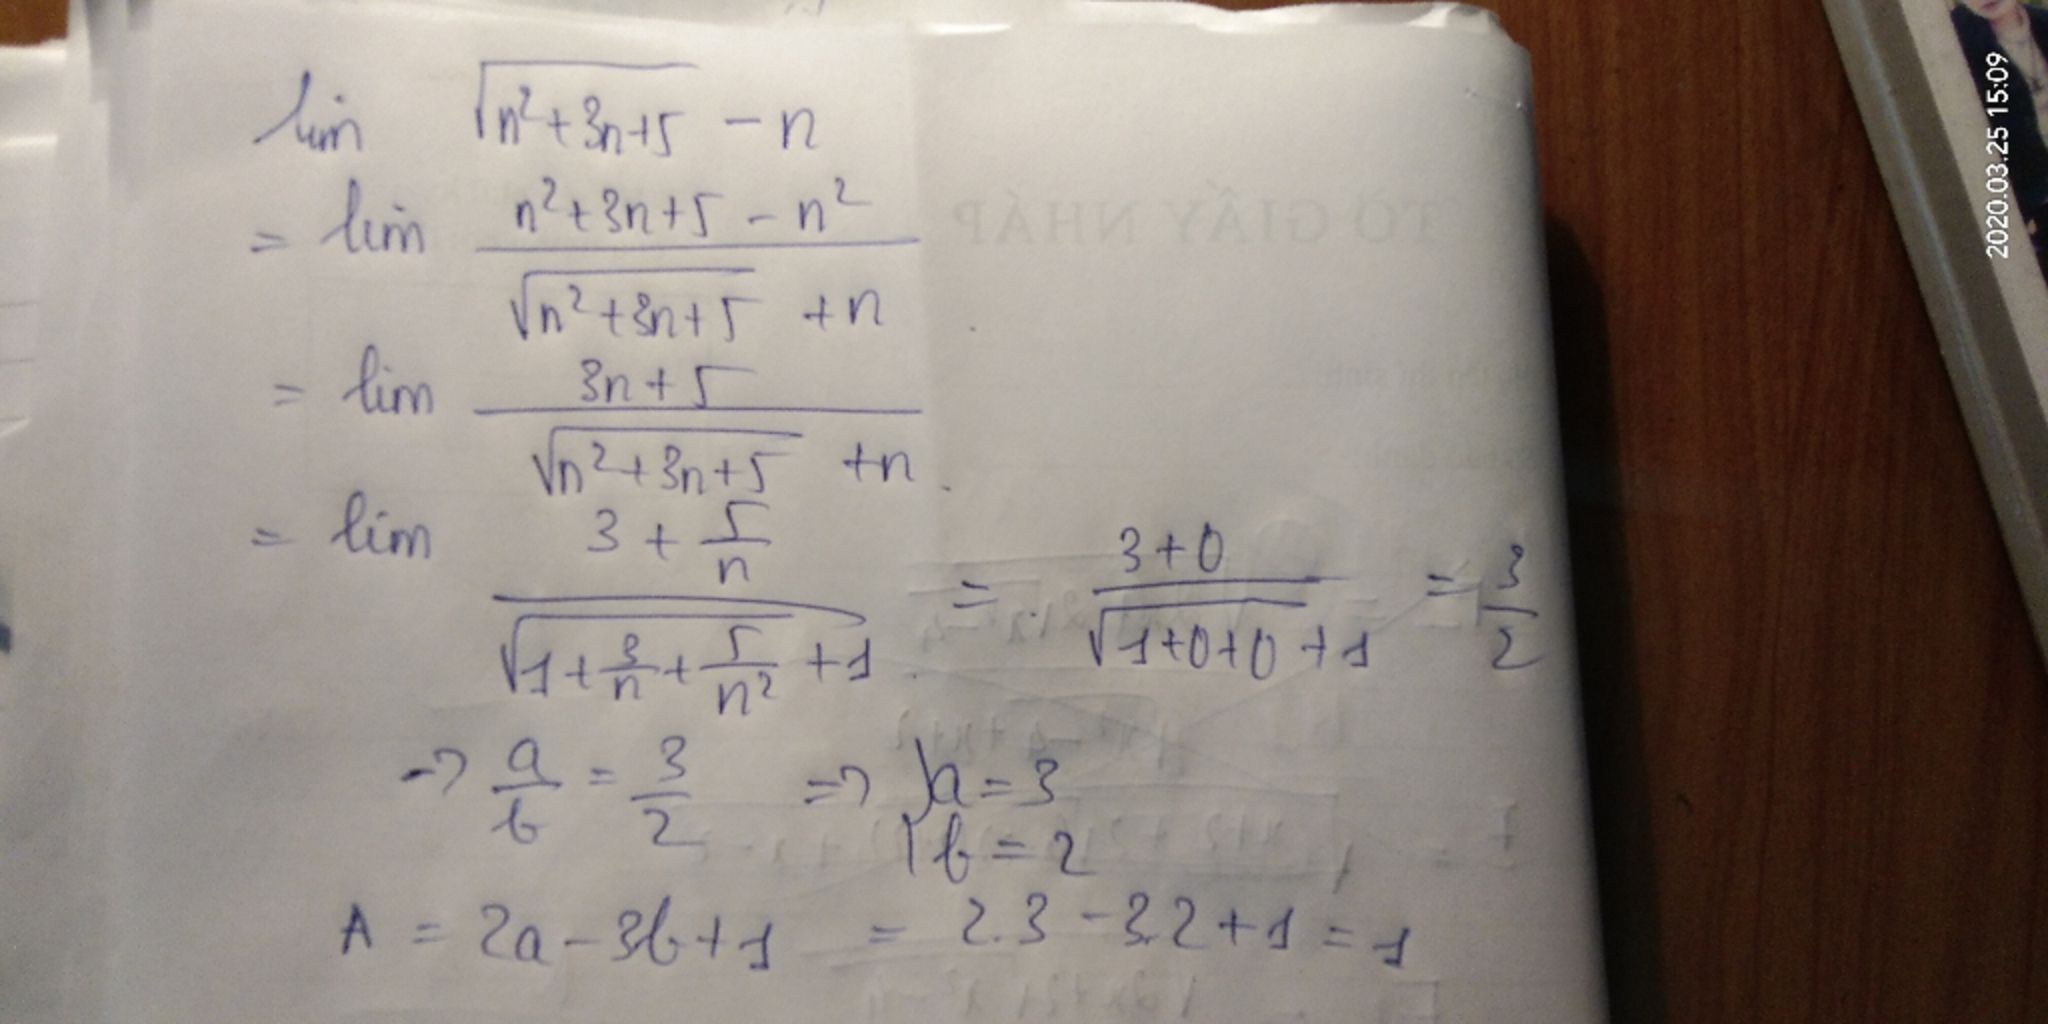 lim √(n²+3n+5) - n
= lim (n²+3n+5 - n²) / (√(n²+3n+5) + n)
= lim (3n+5) / (√(n²+3n+5) + n)
= lim (3 + 5/n) / (√(1 + 3/n + 5/n²) + 1) = (3+0) / (√(1+0+0) + 1) = 3/2
→ a/b = 3/2 => { a = 3
b = 2
A = 2a - 3b + 1 = 2.3 - 3.2 + 1 = 1
TỜ GIẤY NHÁP
2020.03.25 15:09